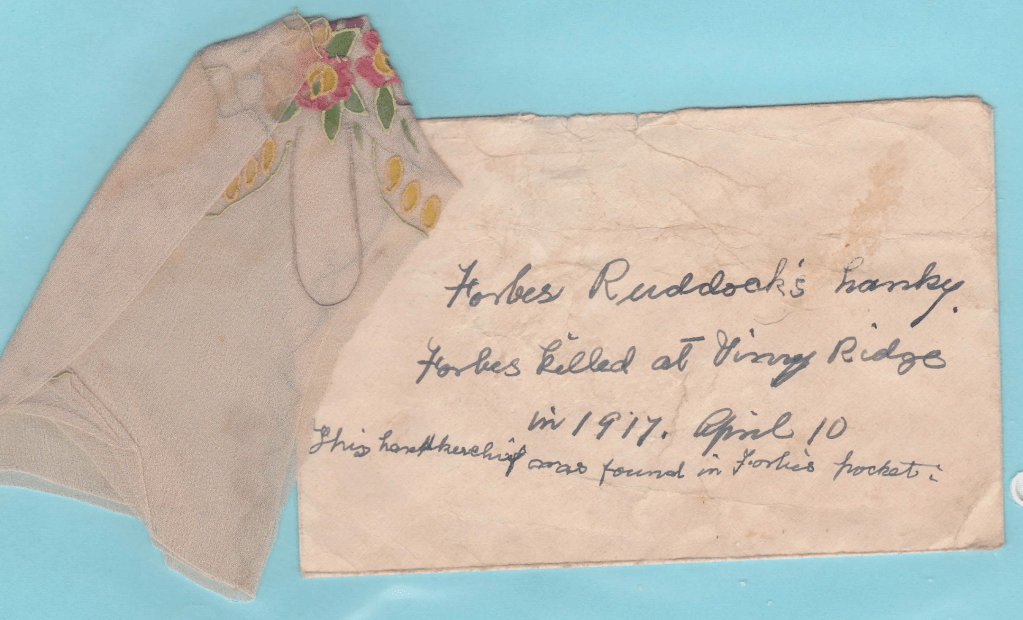 Forbes Ruddock's hanky.
Forbes killed at Vimy Ridge
in 1917. April 10
This handkerchief was found in Forbes pocket.